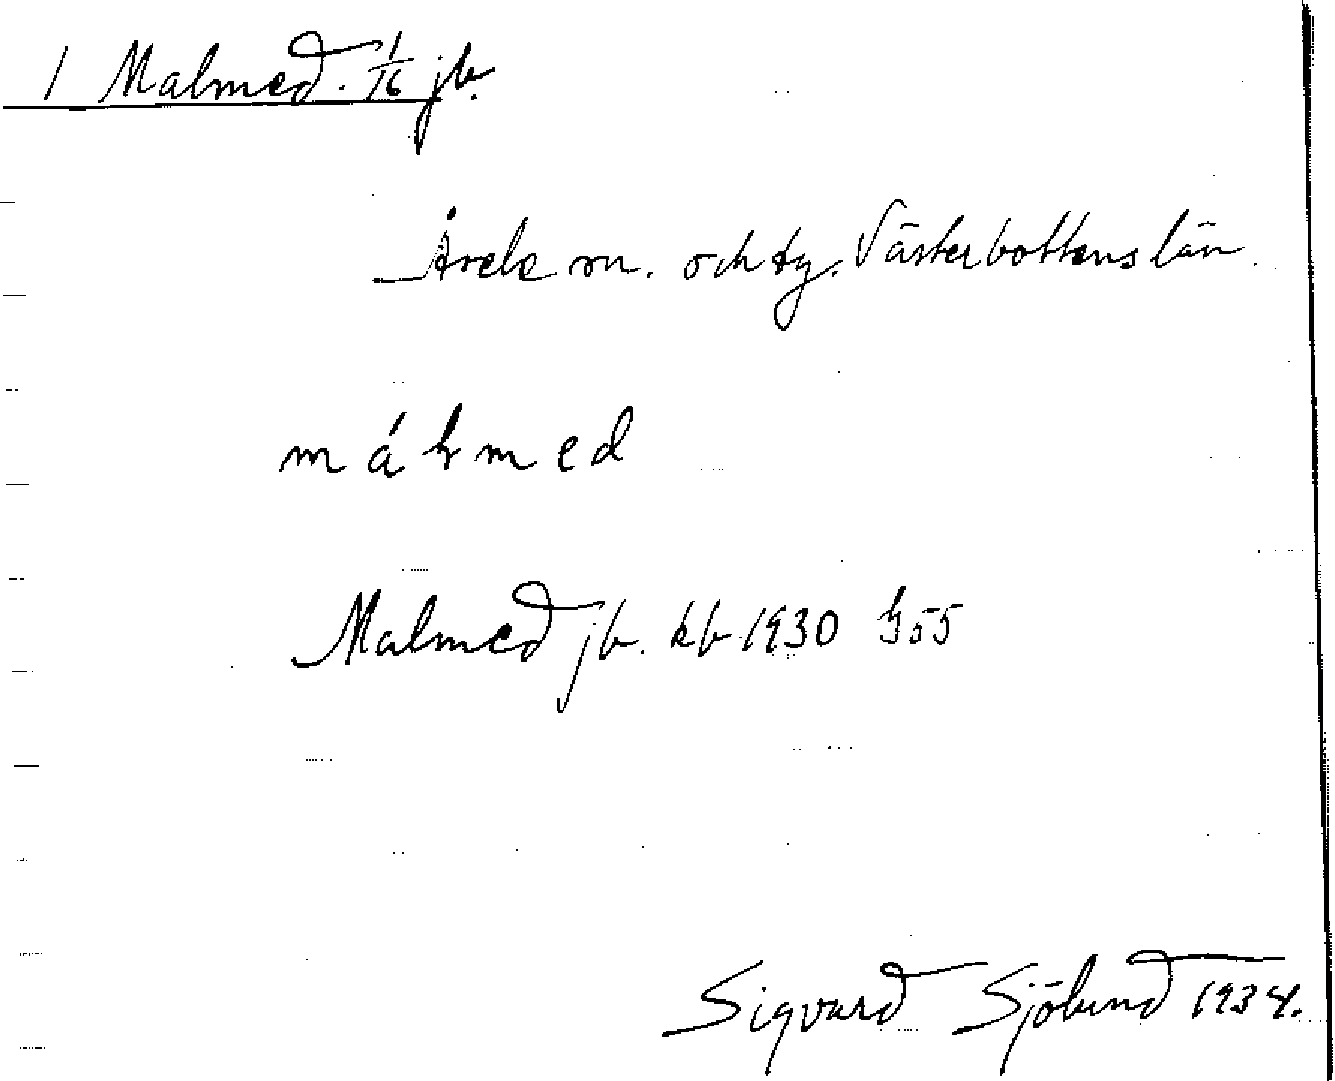 1 Malmed. 1/16 jb.
Åsele sn. och tg. Västerbottens län.
Malmed jb. kb 1930 s55
Sigvard Sjölund 1934.